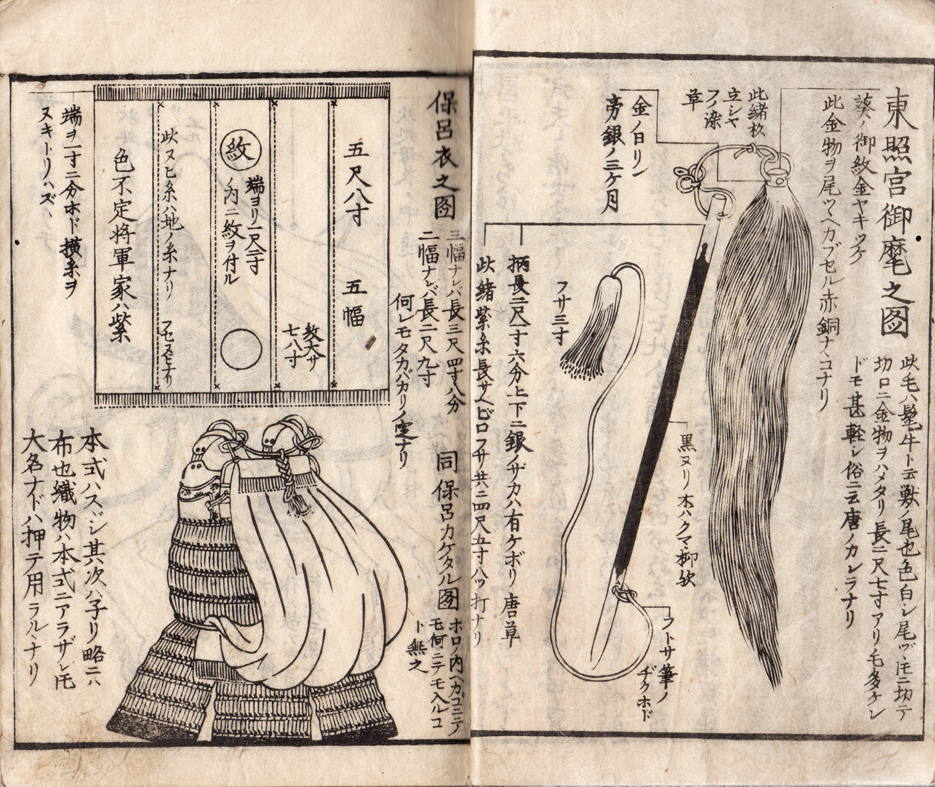 東照宮御麾之図
此毛ハ髦牛ト云獣ノ尾也色白シ尾ヅヽ𪜈ニ切テ
切口ニ金物ヲハメタリ長二尺七寸アリ毛多ケレ
ドモ甚軽シ俗ニ云唐ノカシラナリ
葵ノ御紋金ヤキツケ
此金物ヲ尾ヅヽヘカブセル赤銅ナヽコナリ
此緒枚
立シヤ
フノ染
革
金ノ日リン
旁銀ノ三ケ月
黒ヌリ木ハクマ柳欤
フトサ筆ノ
ヂクホド
フサ三寸
柄長二尺寸六分上下ニ銀ノザカハ有ケボリ唐草
此緒紫糸長サヘビロフサ共ニ四尺五寸八ツ打ナリ
保呂衣之図
三幅ナレバ長三尺四寸八分
二幅ナレバ長二尺九寸
何レモタカバカリノ定ナリ
五尺八寸 五幅
教大サ
七八寸
紋
端ヨリ一尺二寸
ノ内ニ紋ヲ付ル
此ヌヒ糸ハ地ノ糸ナリ フセヌヒナリ
色不定将軍家ハ紫
端ヲ一寸二分ホド横糸ヲ
ヌキトリハズ
同保呂カケタル図
ホロノ内ヘカゴニテ
モ何ニテモ入ルコ
ト無之
本式ハスヾシ其次ハ子リ略ニハ
布也織物ハ本式ニアラザレ𪜈
大名ナドハ押テ用ラルヽナリ